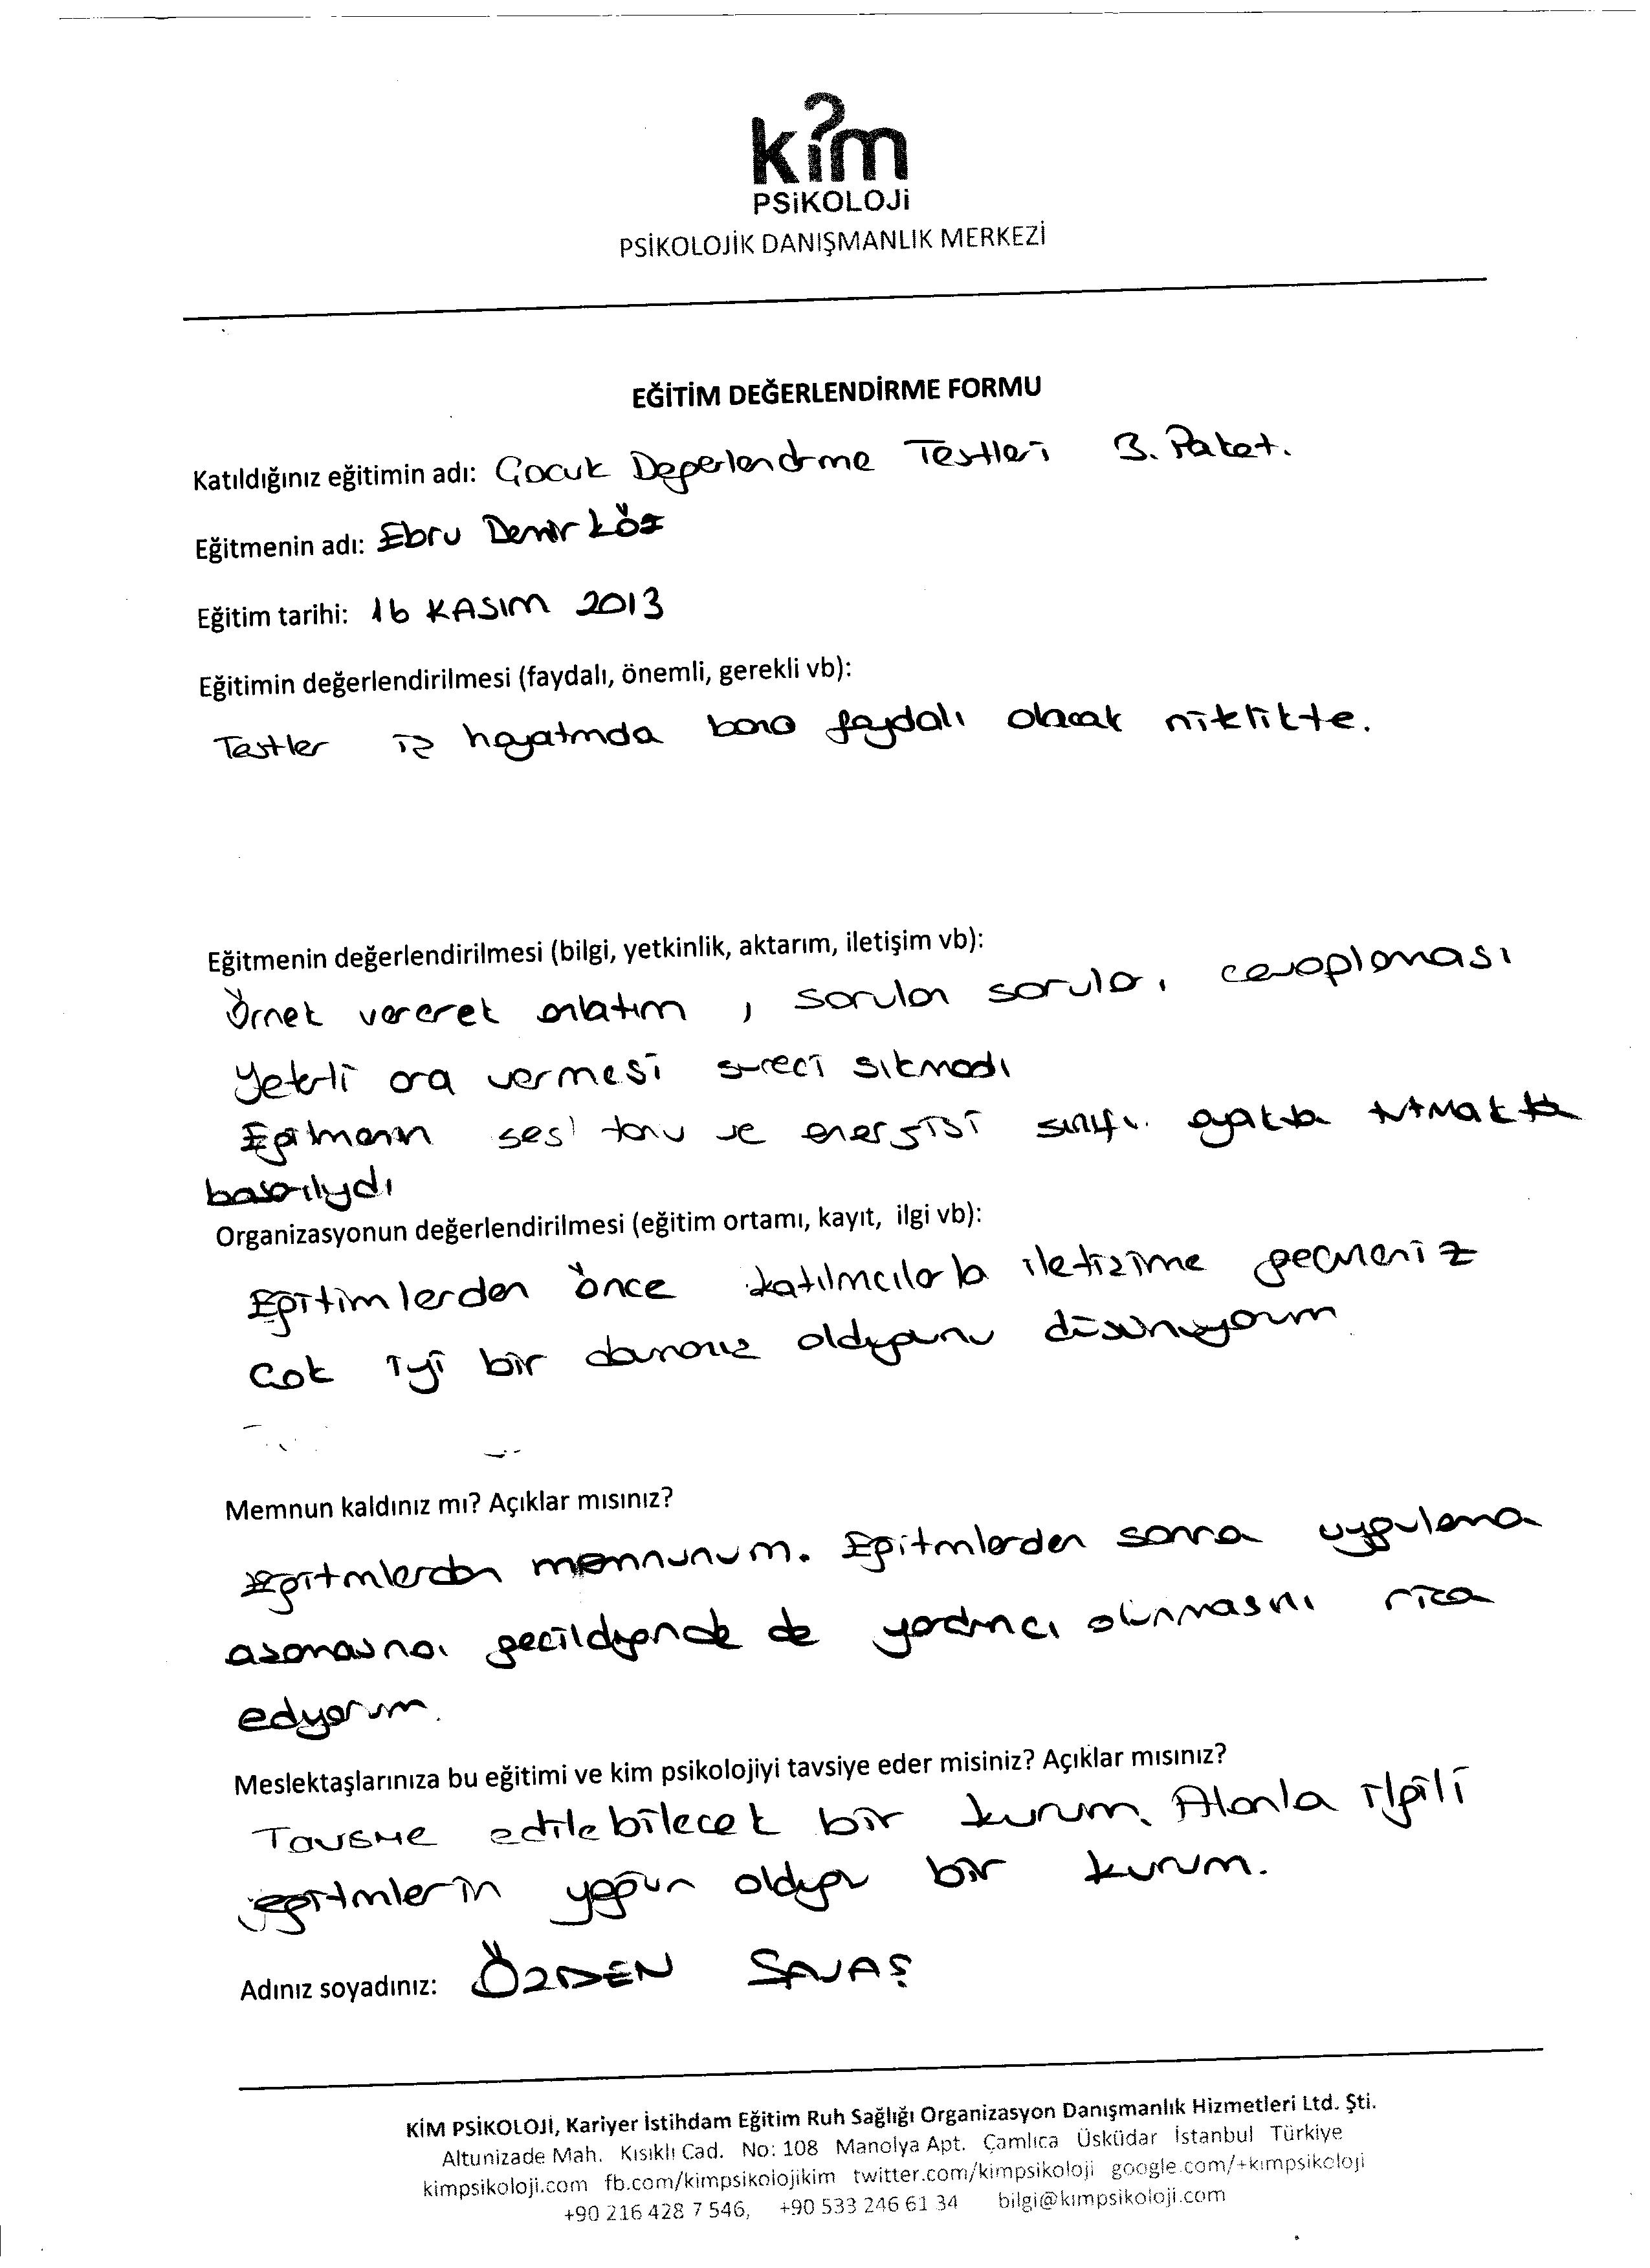 kim
PSiKOLOJi
PSİKOLOJİK DANIŞMANLIK MERKEZİ
EĞİTİM DEĞERLENDİRME FORMU
Katıldığınız eğitimin adı: Çocuk Değerlendirme Testleri 3. Paket.
Eğitmenin adı: Ebru Demir Köz
Eğitim tarihi: 16 KASIM 2013
Eğitimin değerlendirilmesi (faydalı, önemli, gerekli vb):
Testler iş hayatımda bana faydalı olacak nitelikte.
Eğitmenin değerlendirilmesi (bilgi, yetkinlik, aktarım, iletişim vb):
Örnek vererek anlatım, sorulan soruları cevaplaması
Yeterli ara vermesi süreci sıkmadı
Eğitmenin sesi tonu ve enerjisi sınıfı ayakta tutmakta
başarılıydı
Organizasyonun değerlendirilmesi (eğitim ortamı, kayıt, ilgi vb):
Eğitimlerden önce katılımcılarla iletişime geçmeniz
Çok iyi bir davranış olduğunu düşünüyorum
Memnun kaldınız mı? Açıklar mısınız?
Eğitimlerden memnunum. Eğitimlerden sonra uygulama
aşamasına geçildiğinde de yardımcı olunmasını rica
ediyorum.
Meslektaşlarınıza bu eğitimi ve kim psikolojiyi tavsiye eder misiniz? Açıklar mısınız?
Tavsiye edilebilecek bir kurum. Alanla ilgili
eğitimlerin yoğun olduğu bir kurum.
Adınız soyadınız: ÖZDEN SAVAŞ
KİM PSİKOLOJİ, Kariyer İstihdam Eğitim Ruh Sağlığı Organizasyon Danışmanlık Hizmetleri Ltd. Şti.
Altunizade Mah. Kısıklı Cad. No: 108 Manolya Apt. Çamlıca Üsküdar İstanbul Türkiye
kimpsikoloji.com fb.com/kimpsikolojikim twitter.com/kimpsikoloji google.com/+kimpsikoloji
+90 216 428 7 546, +90 533 246 61 34 bilgi@kimpsikoloji.com